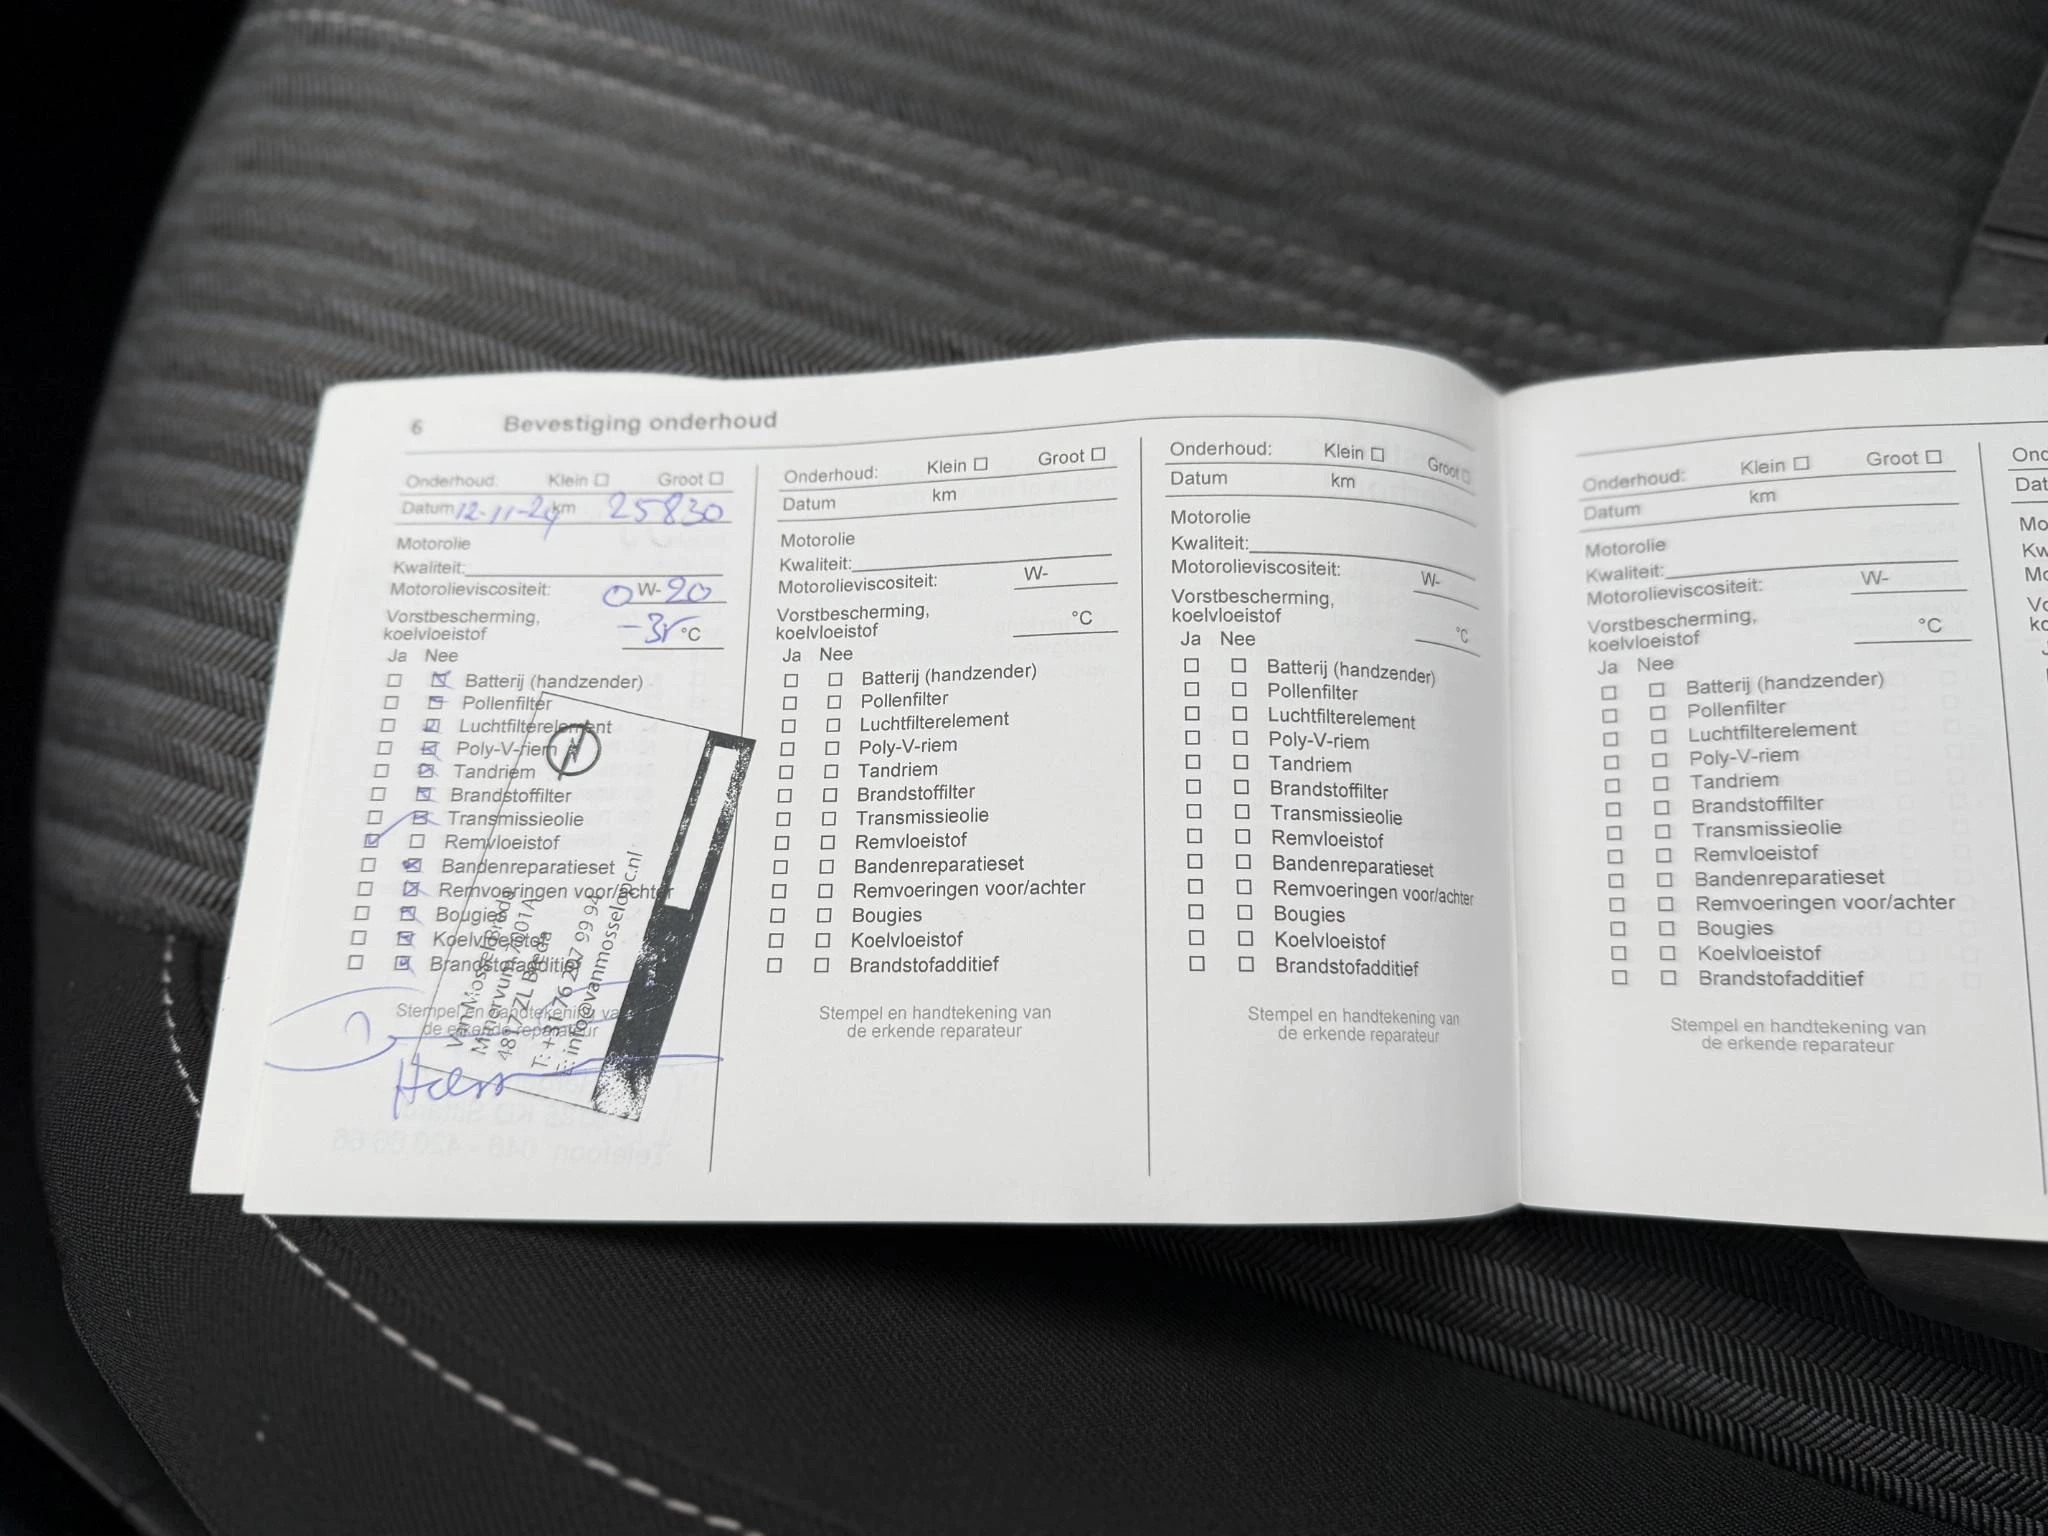 6 Bevestiging onderhoud
Onderhoud: Klein Groot
Datum 12-11-24 km 25830
Motorolie
Kwaliteit:
Motorolieviscositeit: 0 W- 20
Vorstbescherming,
koelvloeistof -35 °C
Ja Nee
Batterij (handzender)
Pollenfilter
Luchtfilterelement
Poly-V-riem
Tandriem
Brandstoffilter
Transmissieolie
Remvloeistof
Bandenreparatieset
Remvoeringen voor/achter
Bougies
Koelvloeistof
Brandstofadditief
Stempel en handtekening van
de erkende reparateur
Van Mossel Breda
Minervum 7001A
4817 ZL Breda
T: +31 76 207 99 94
E: info@vanmosselopc.nl
Onderhoud: Klein Groot
Datum km
Motorolie
Kwaliteit:
Motorolieviscositeit: W-
Vorstbescherming,
koelvloeistof °C
Ja Nee
Batterij (handzender)
Pollenfilter
Luchtfilterelement
Poly-V-riem
Tandriem
Brandstoffilter
Transmissieolie
Remvloeistof
Bandenreparatieset
Remvoeringen voor/achter
Bougies
Koelvloeistof
Brandstofadditief
Stempel en handtekening van
de erkende reparateur
Onderhoud: Klein Groot
Datum km
Motorolie
Kwaliteit:
Motorolieviscositeit: W-
Vorstbescherming,
koelvloeistof °C
Ja Nee
Batterij (handzender)
Pollenfilter
Luchtfilterelement
Poly-V-riem
Tandriem
Brandstoffilter
Transmissieolie
Remvloeistof
Bandenreparatieset
Remvoeringen voor/achter
Bougies
Koelvloeistof
Brandstofadditief
Stempel en handtekening van
de erkende reparateur
Onderhoud: Klein Groot
Datum km
Motorolie
Kwaliteit:
Motorolieviscositeit: W-
Vorstbescherming,
koelvloeistof °C
Ja Nee
Batterij (handzender)
Pollenfilter
Luchtfilterelement
Poly-V-riem
Tandriem
Brandstoffilter
Transmissieolie
Remvloeistof
Bandenreparatieset
Remvoeringen voor/achter
Bougies
Koelvloeistof
Brandstofadditief
Stempel en handtekening van
de erkende reparateur